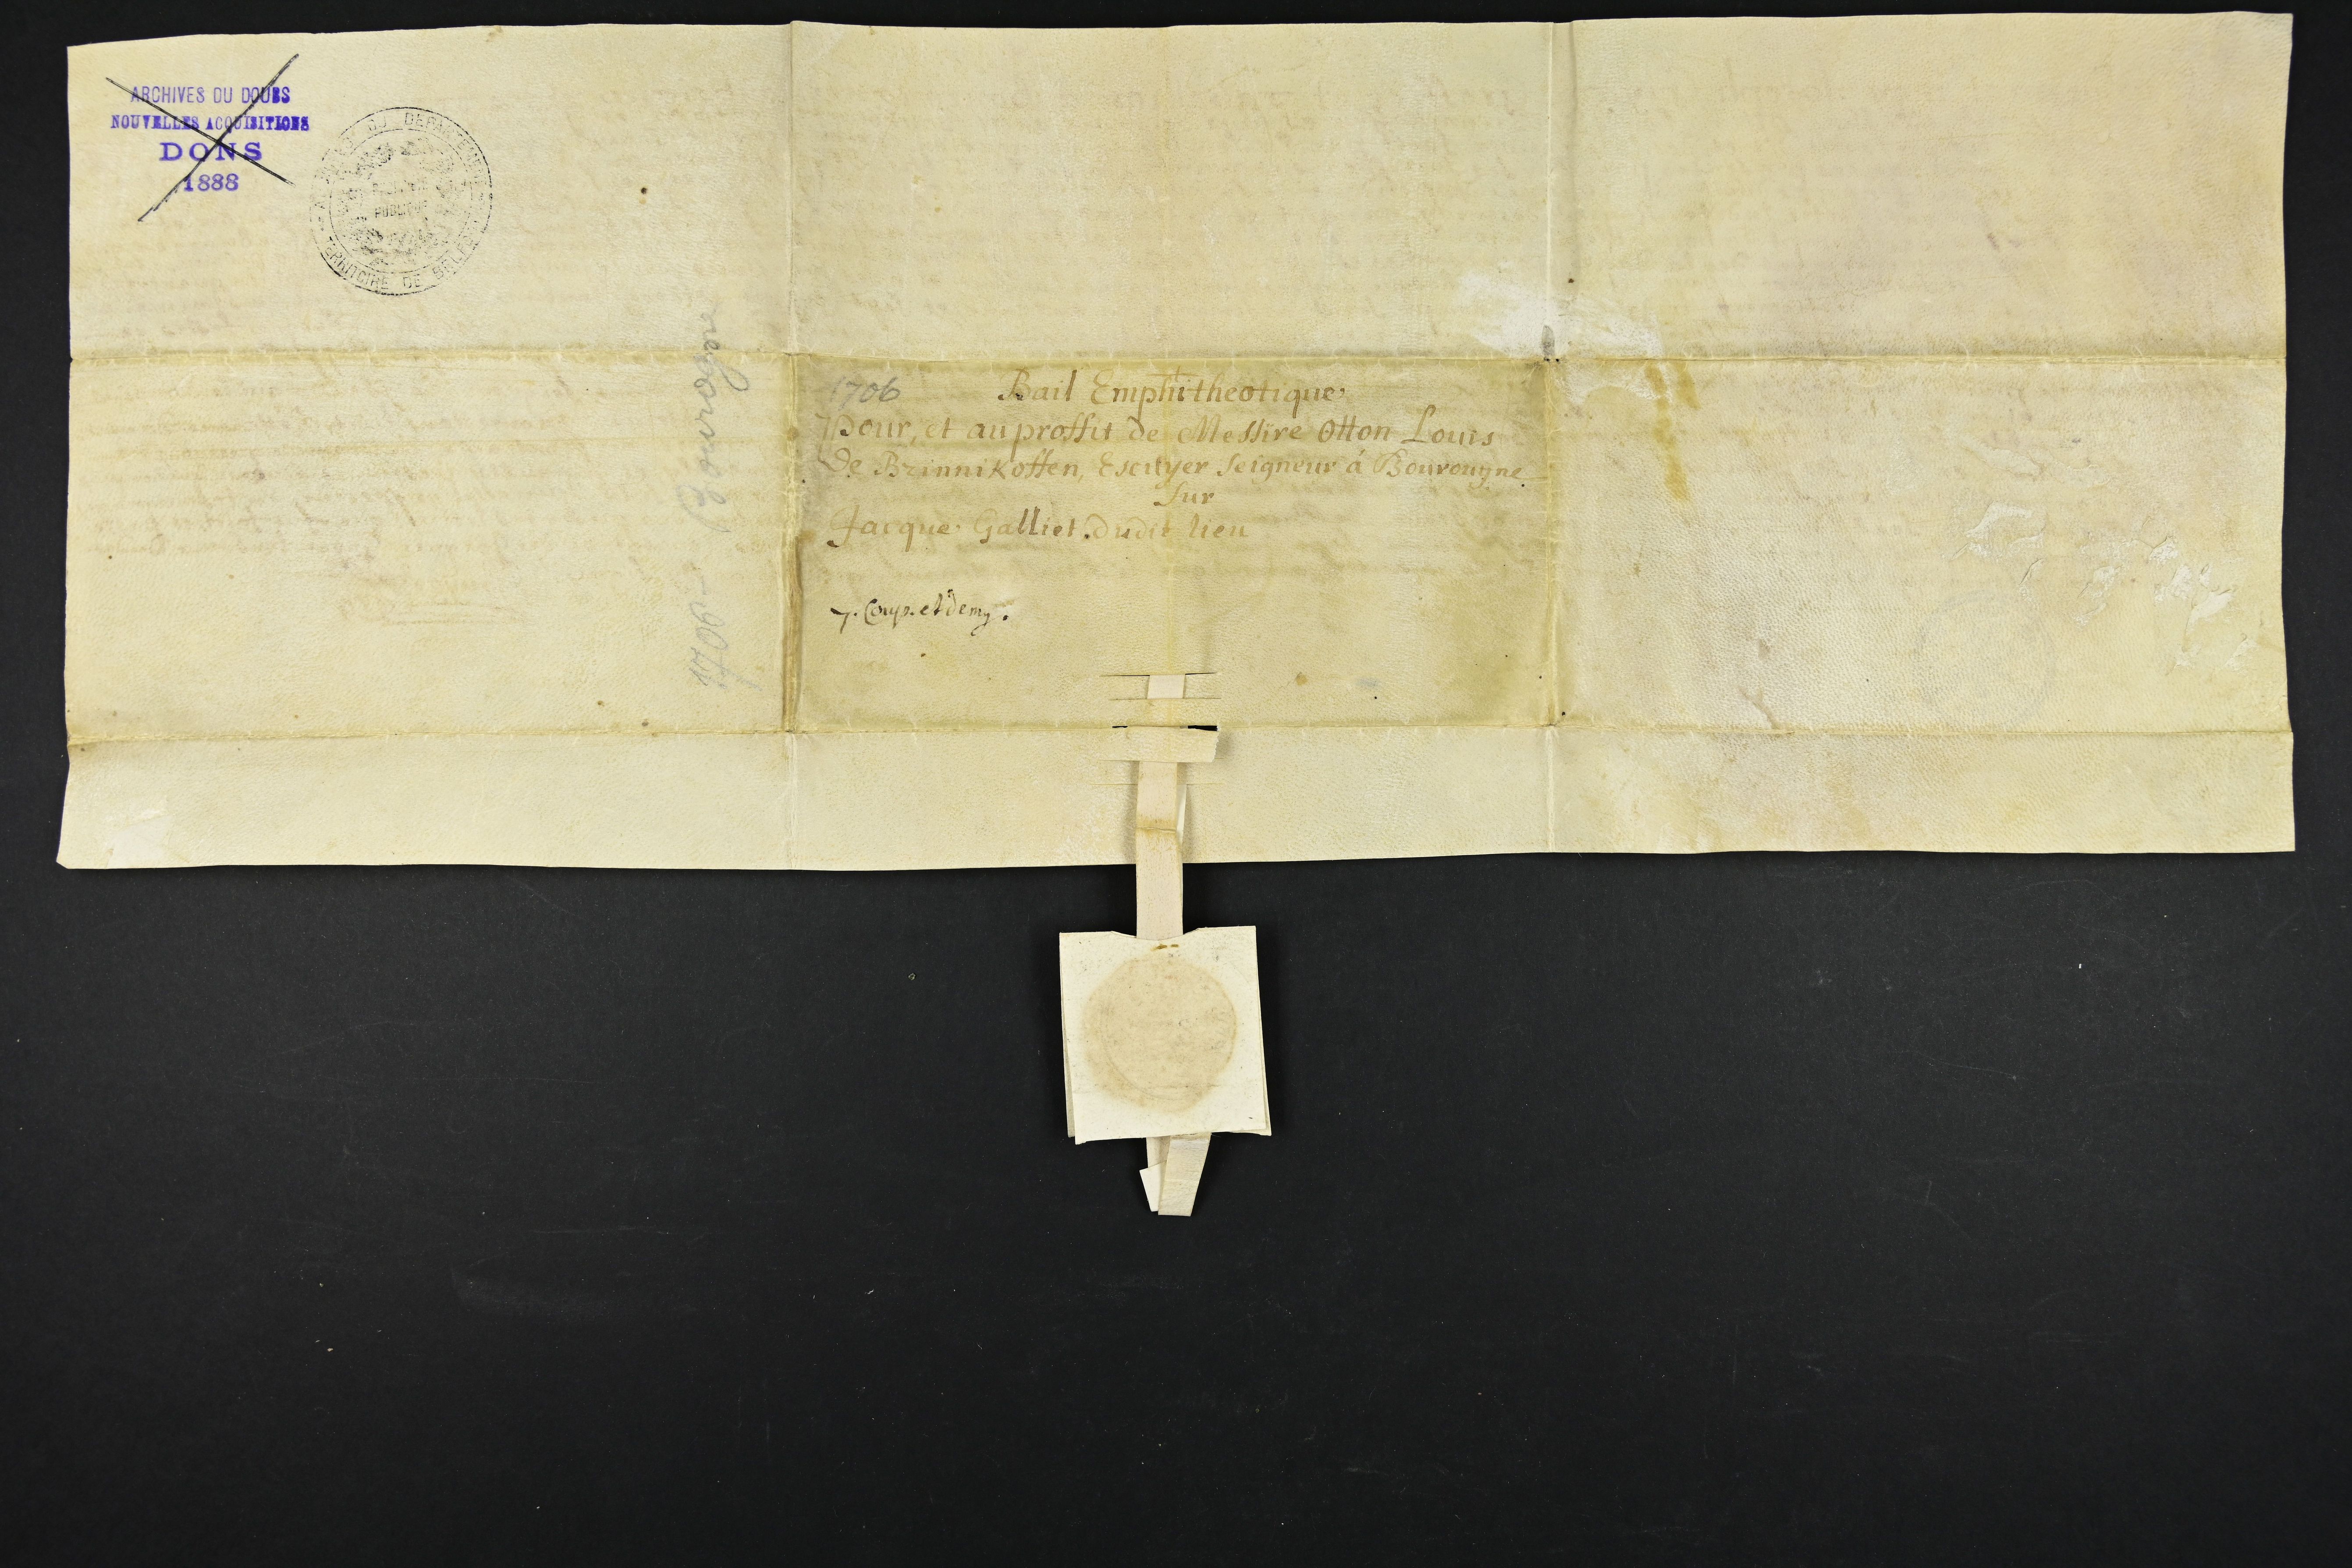 ARCHIVES DU DOUBS
NOUVELLES ACQUISITIONS
DONS
1888
DU DEPARTEMENT
PUBLIQUE
TERRITOIRE DE BELFORT
1706 - Bourogne
1706 Bail Emphitheotique
Pour, et au proffit de Messire Otton Louis
De Brinnikoffen, Escuyer Seigneur á Bourougne
Sur
Jacque Galliet dudit lieu
7. Coup. et demy.